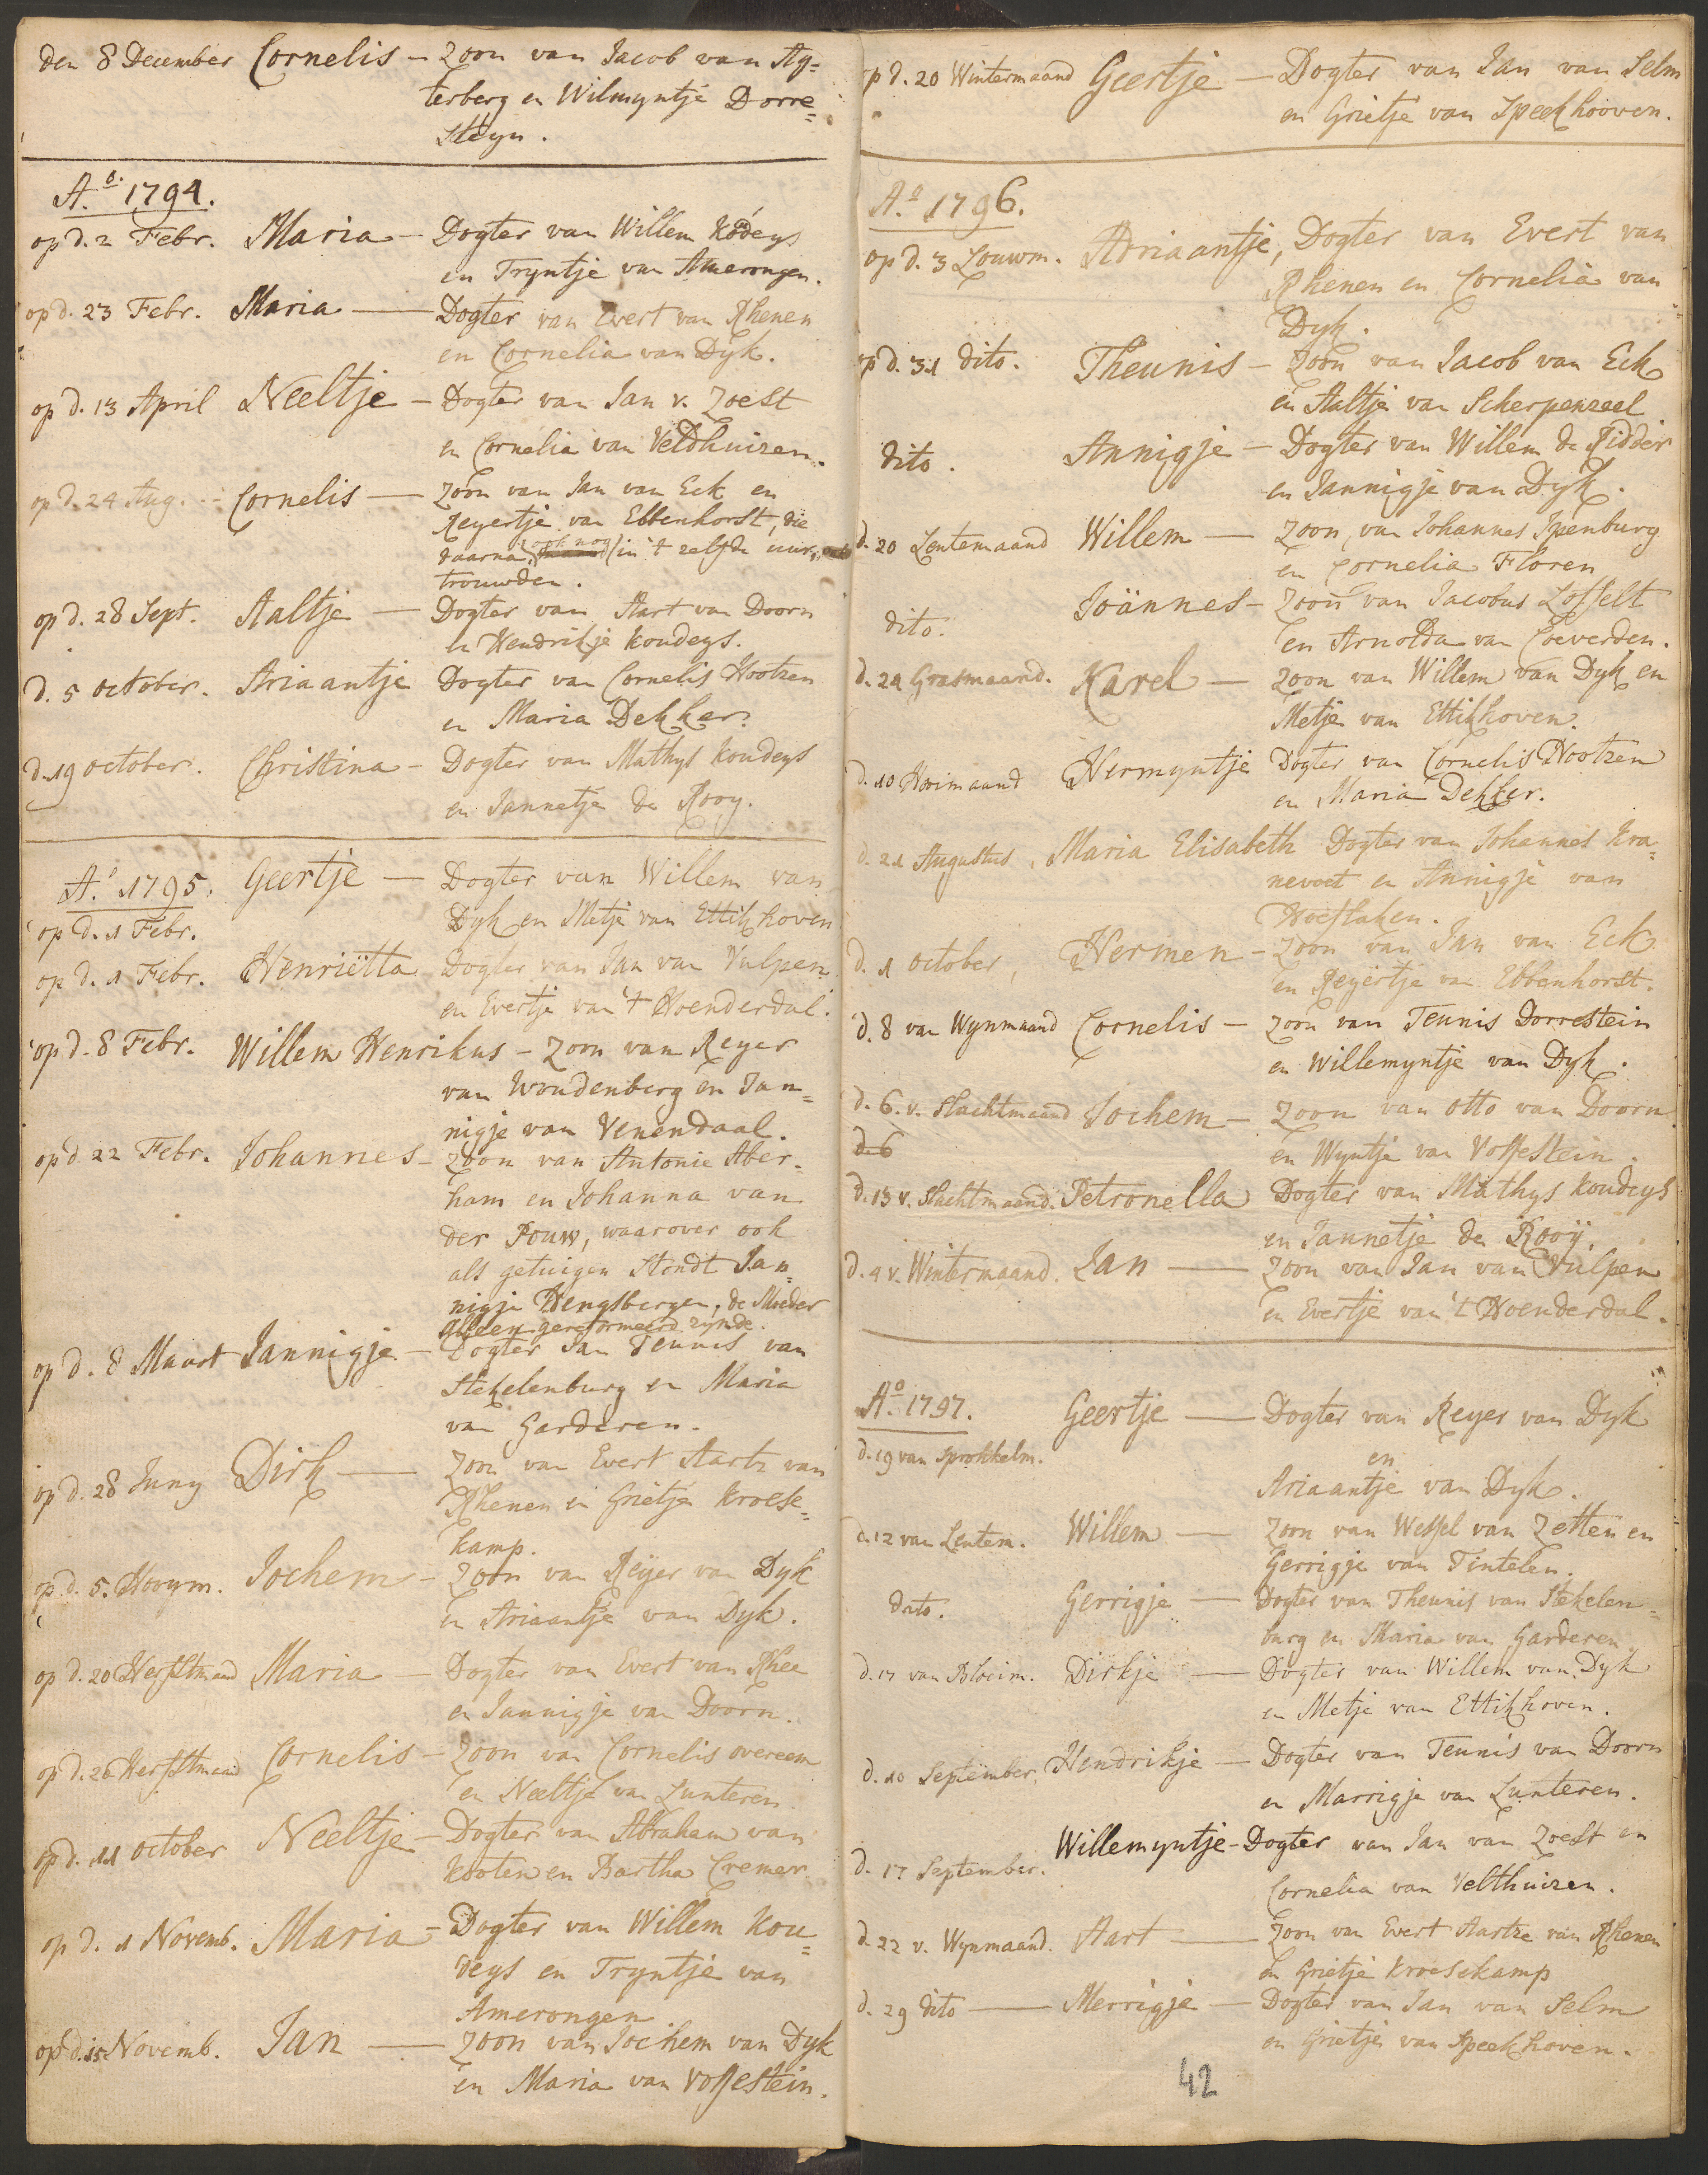 den 8 December Cornelis – Zoon van Jacob van Ag=
terberg en Wilmyntje Dorre=
Steyn.
A.º 1794.
op d. 2 Febr. Maria – Dogter van Willem Kodeys
en Tryntje van Amerongen.
op d. 23 Febr. Maria – Dogter van Evert van Rhenen
en Cornelia van Dyk.
op d. 13 April Neeltje – Dogter van Jan v. Zoest
en Cornelia van Veldhuizen.
op d. 24 Aug. – Cornelis – Zoon van Jan van Eck en
Reyertje van Ebbenhorst, die
daarna (ook nog) in 't zelfde uur
trouwden.
op d. 28 Sept. Aaltje – Dogter van Aart van Doorn
en Hendrikje Koudeys.
d. 5 october. Ariaantje Dogter van Cornelis Hootzen
en Maria Dekker.
d. 19 october. Christina – Dogter van Mathys Koudeys
en Jannetje de Rooy.
A.º 1795. Geertje – Dogter van Willem van
Dyk en Metje van Ettikhoven
op d. 1 Febr.
op d. 1 Febr. Henriëtta Dogter van Jan van Vulpen
en Evertje van 't Hoenderdal.
op d. 8 Febr. Willem Henrikus – Zoon van Reyer
van Woudenberg en Jan=
nigje van Venendaal.
op d. 22 Febr. Johannes – Zoon van Antonie Aber=
ham en Johanna van
der Pouw, waarover ook
als getuigen Stondt Jan=
nigje Hengsbergen, de Moeder
alleen gereformeerd zynde.
op d. 8 Maart Jannigje – Dogter van Teunis van
Stekelenburg en Maria
van Garderen.
op d. 28 Juny Dirk – Zoon van Evert Aartz van
Rhenen en Grietje Kroese=
kamp.
op d. 5. Hooym. Jochem – Zoon van Reyer van Dyk
en Ariaantje van Dyk.
op d. 20 Herfstmaand Maria – Dogter van Evert van Rhee
en Jannigje van Doorn.
op d. 20 Herfstmaand Cornelis – Zoon van Cornelis overeem
en Neeltje van Lunteren
op d. 11 october Neeltje – Dogter van Abraham van
Kooten en Bartha Cremer
op d. 1 Novemb. Maria – Dogter van Willem Kou=
deys en Tryntje van
Amerongen
op d. 15 Novemb. Jan – Zoon van Jochem van Dyk
en Maria van Vosfestein.
op d. 20 Wintermaand Geertje – Dogter van Jan van Selm
en Grietje van Speekhooven.
A.º 1796.
op d. 3 Louwm. Adriaantje, Dogter van Evert van
Rhenen en Cornelia van
Dyk.
op d. 31 dito. Theunis – Zoon van Jacob van Eck
en Aaltje van Scherpenzeel
dito. Annigje – Dogter van Willem de Ridder
en Jannigje van Dyk.
d. 20 Lentemaand Willem – Zoon, van Johannes Ipenburg
en Cornelia Floren
dito. Joännes – Zoon van Jacobus Losfelt
en Arnolda van Coeverden.
d. 24 Grasmaand. Karel – Zoon van Willem van Dyk en
Metje van Ettikhoven.
d. 10 Hooimaand Hermyntje Dogter van Cornelis Hootzen
en Maria Dekker.
d. 21 Augustus, Maria Elisabeth Dogter van Johannes Kra=
nevoet en Annigje van
Hoeflaken.
d. 1 october, Hermen – Zoon van Jan van Eck
en Reyertje van Ebbenhorst.
d. 8 van Wynmaand Cornelis – Zoon van Teunis Dorrestein
en Willemyntje van Dyk.
d. 6. v. Slachtmaand Jochem – Zoon van otto van Doorn
d. 6
en Wyntje van Vosfestein.
d. 13 v. Slachtmaand. Petronella Dogter van Mathys Koudeys
en Jannetje de Rooij.
d. 4 v. Wintermaand. Jan – Zoon van Jan van Vulpen
en Evertje van 't Hoenderdal.
A.º 1797. Geertje – Dogter van Reyer van Dyk
d. 19 van Sprokkelm.
en
Ariaantje van Dyk.
d. 12 van Lentem. Willem – Zoon van Wesfel van Zetten en
Gerrigje van Tintelen.
dato. Gerrigje – Dogter van Theunis van Stekelen=
burg en Maria van Garderen.
d. 17 van Bloeim. Dirkje – Dogter van Willem van Dyk
en Metje van Ettikhoven.
d. 10 September, Hendrikje – Dogter van Teunis van Doorn
en Marrigje van Lunteren.
d. 17 September. Willemyntje – Dogter van Jan van Zoest en
Cornelia van Velthuizen.
d. 22 v. Wynmaand. Aart – Zoon van Evert Aartze van Rhenen
en Grietje Kroesekamp
d. 29 dito – Merrigje – Dogter van Jan van Selm
en Grietje van Speekhoven.
42